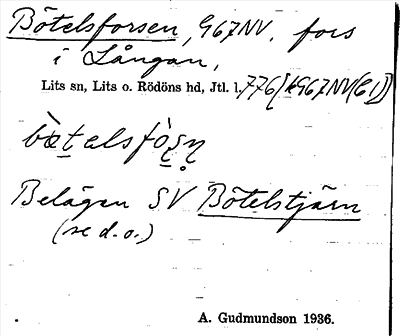 Bötelsforsen, G67NV. fors
i Långan,
Lits sn, Lits o. Rödöns hd, Jtl. l. 776 967NV(C1)]
Belägen SV Bötelstjärn
(se d.o.)
A. Gudmundson 1936.